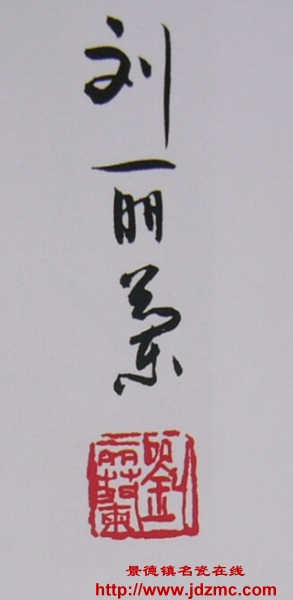 刘丽蘭
劉丽蘭
景德镇名瓷在线
http://www.jdzmc.com